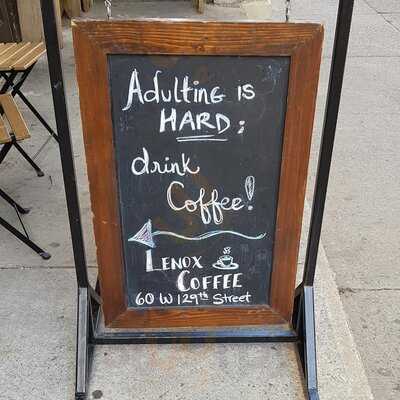 Adulting is
HARD;
drink
Coffee!
LENOX
COFFEE
60 W 129th Street